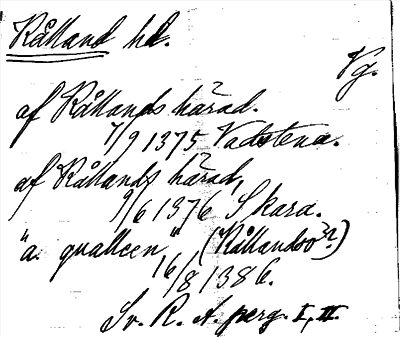 Kålland hd.
Vg.
af Kållands härad.
7/9 1375 Vadstena.
af Kållands härad,
9/6 1376 Skara.
"a qualleen" (Kållandsö?)
16/8 1386.
Sv. R. A. perg. I, II.